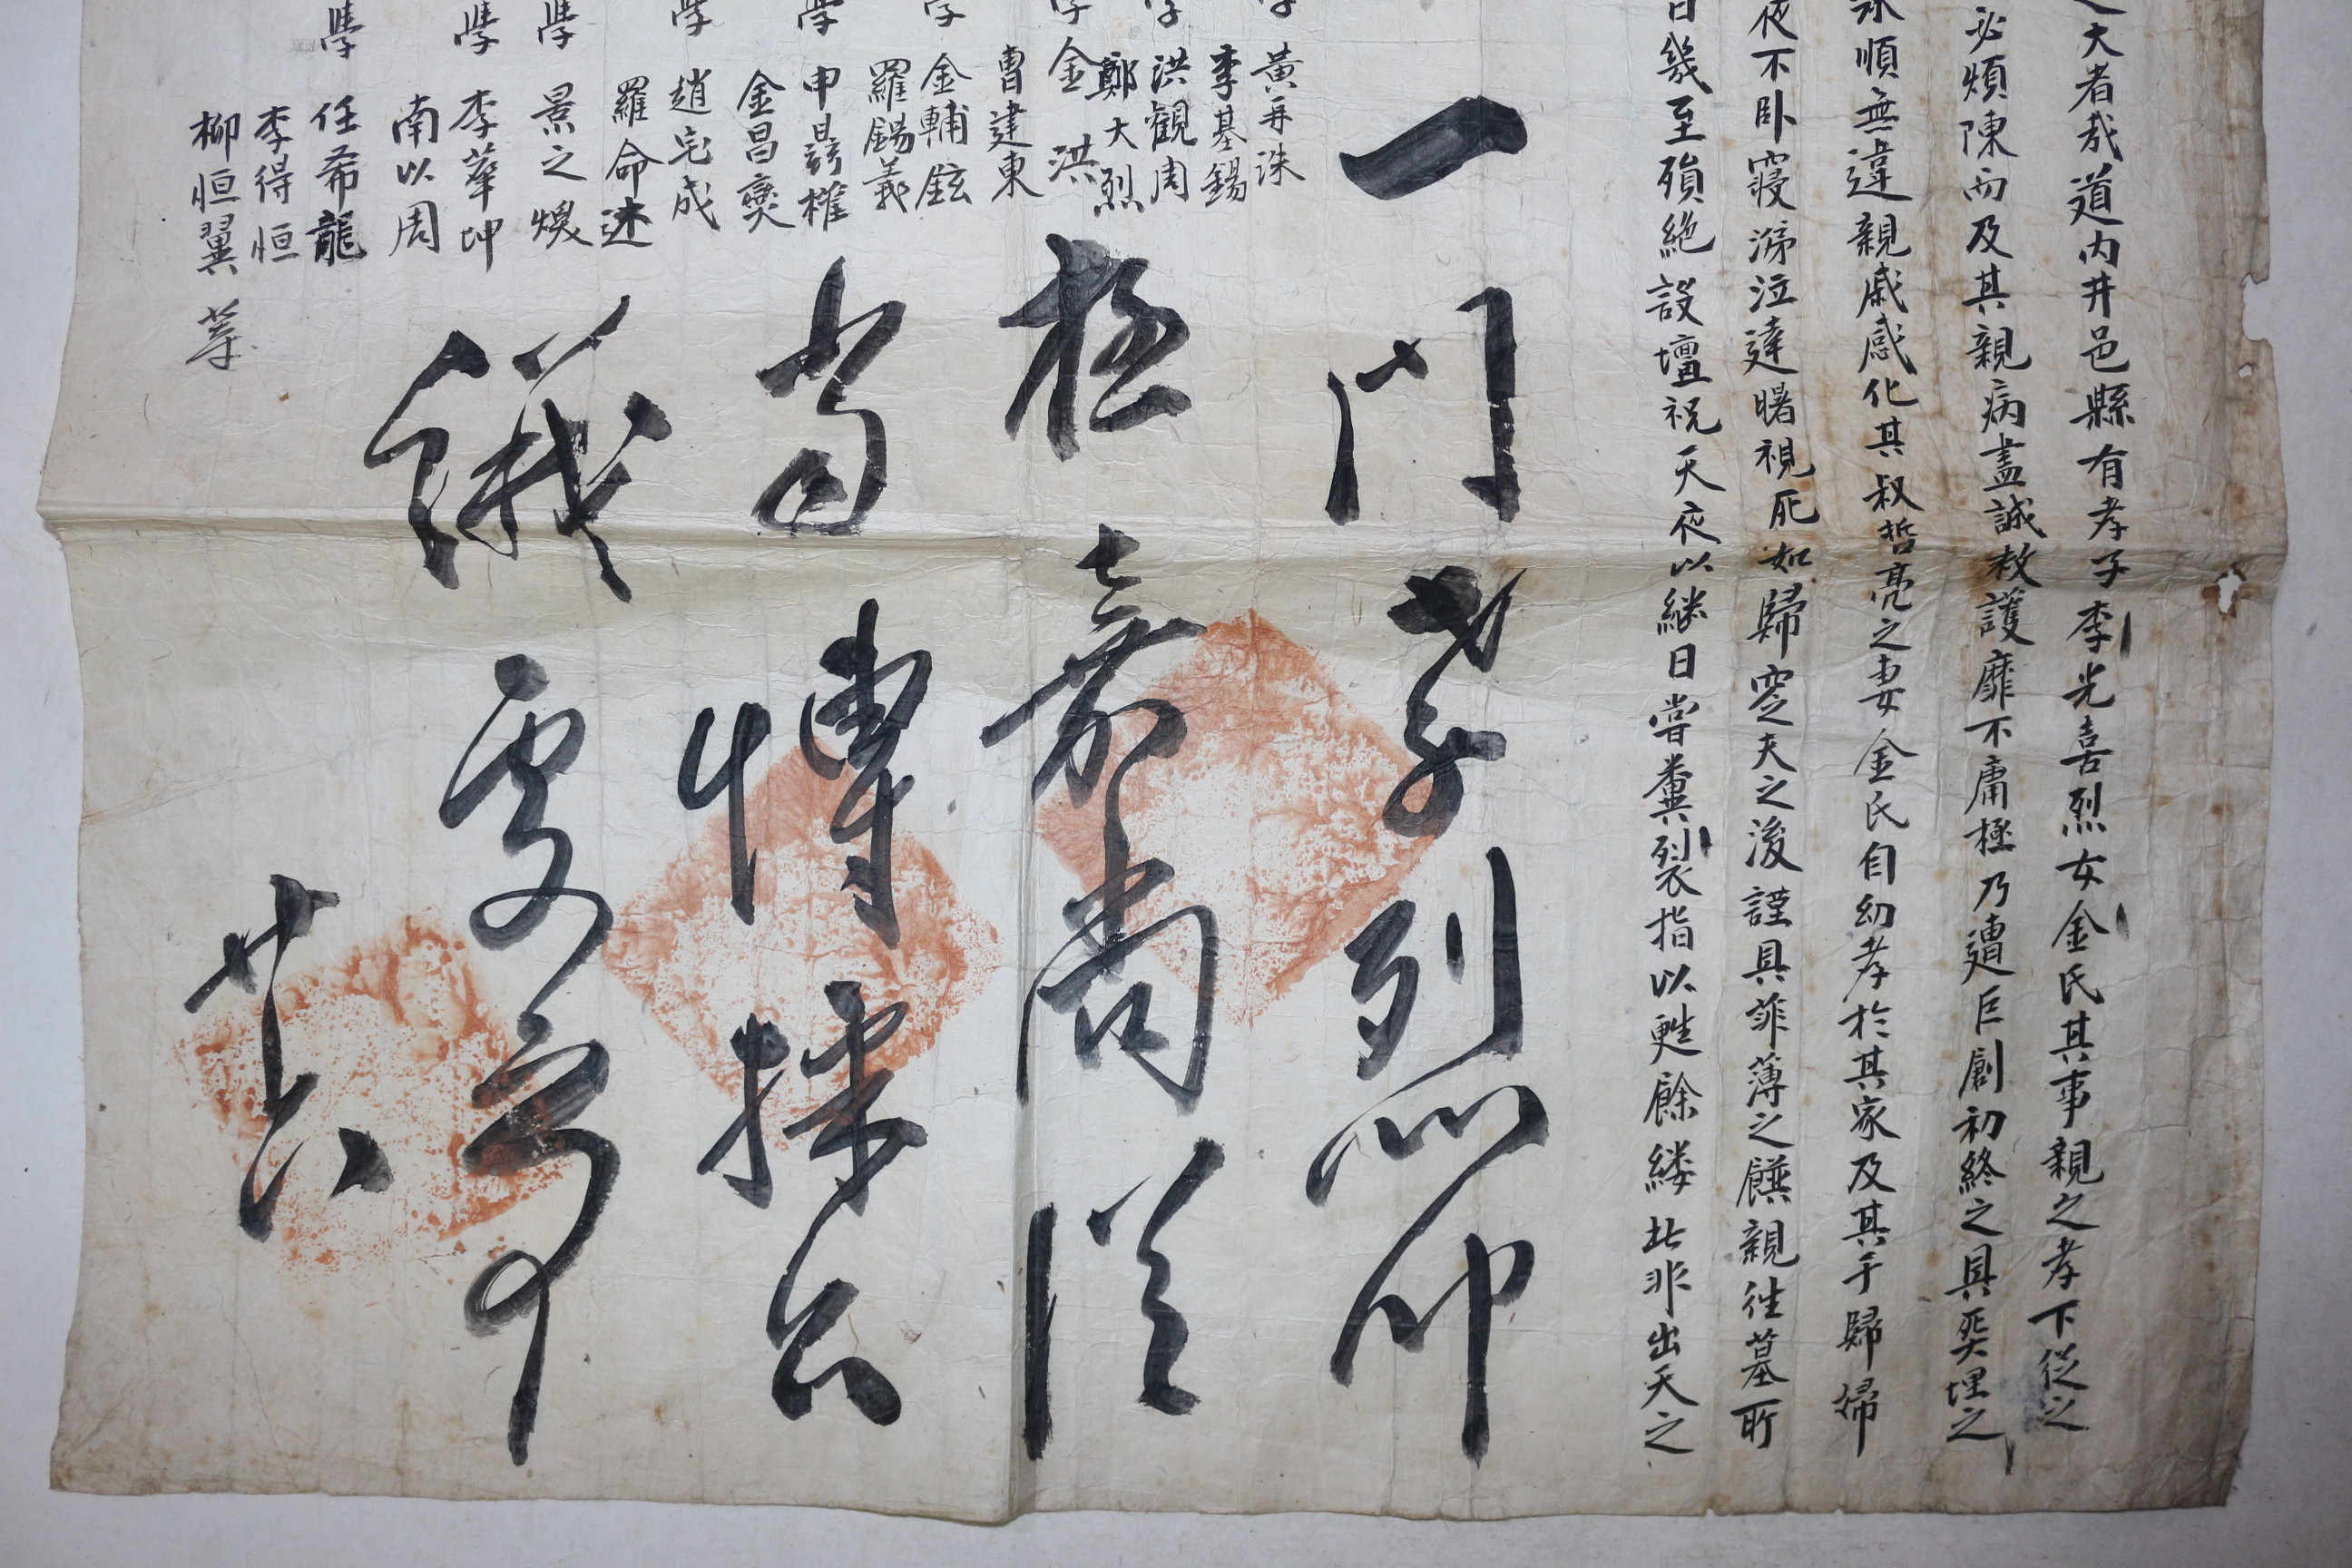 大者哉道內井邑縣有孝子李光喜烈女金氏其事親之孝下從之
必煩陳而及其親病盡誠救護靡不庸極乃遭巨創初終之具奠埋之
順無違親戚感化其叔哲亮之妻金氏自幼孝於其家及其于歸婦
夜不臥寢涕泣達曙視死如歸窆夫之後謹具菲薄之饌親往墓所
日幾至殞絶設壇祝天夜以継日嘗糞裂指以甦餘縷此非出天之
黃再洙
李基錫
洪觀周
鄭大烈
金洪
曺建東
學 金輔鉉
羅錫義
學 申曻權
金昌爕
學 趙完成
羅命述
學 景之煥
學 李華坤
南以周
學 任希龍
李得恒
柳恒翼 等
一門孝烈兩
極嘉尚從
當博採公
議
廿六